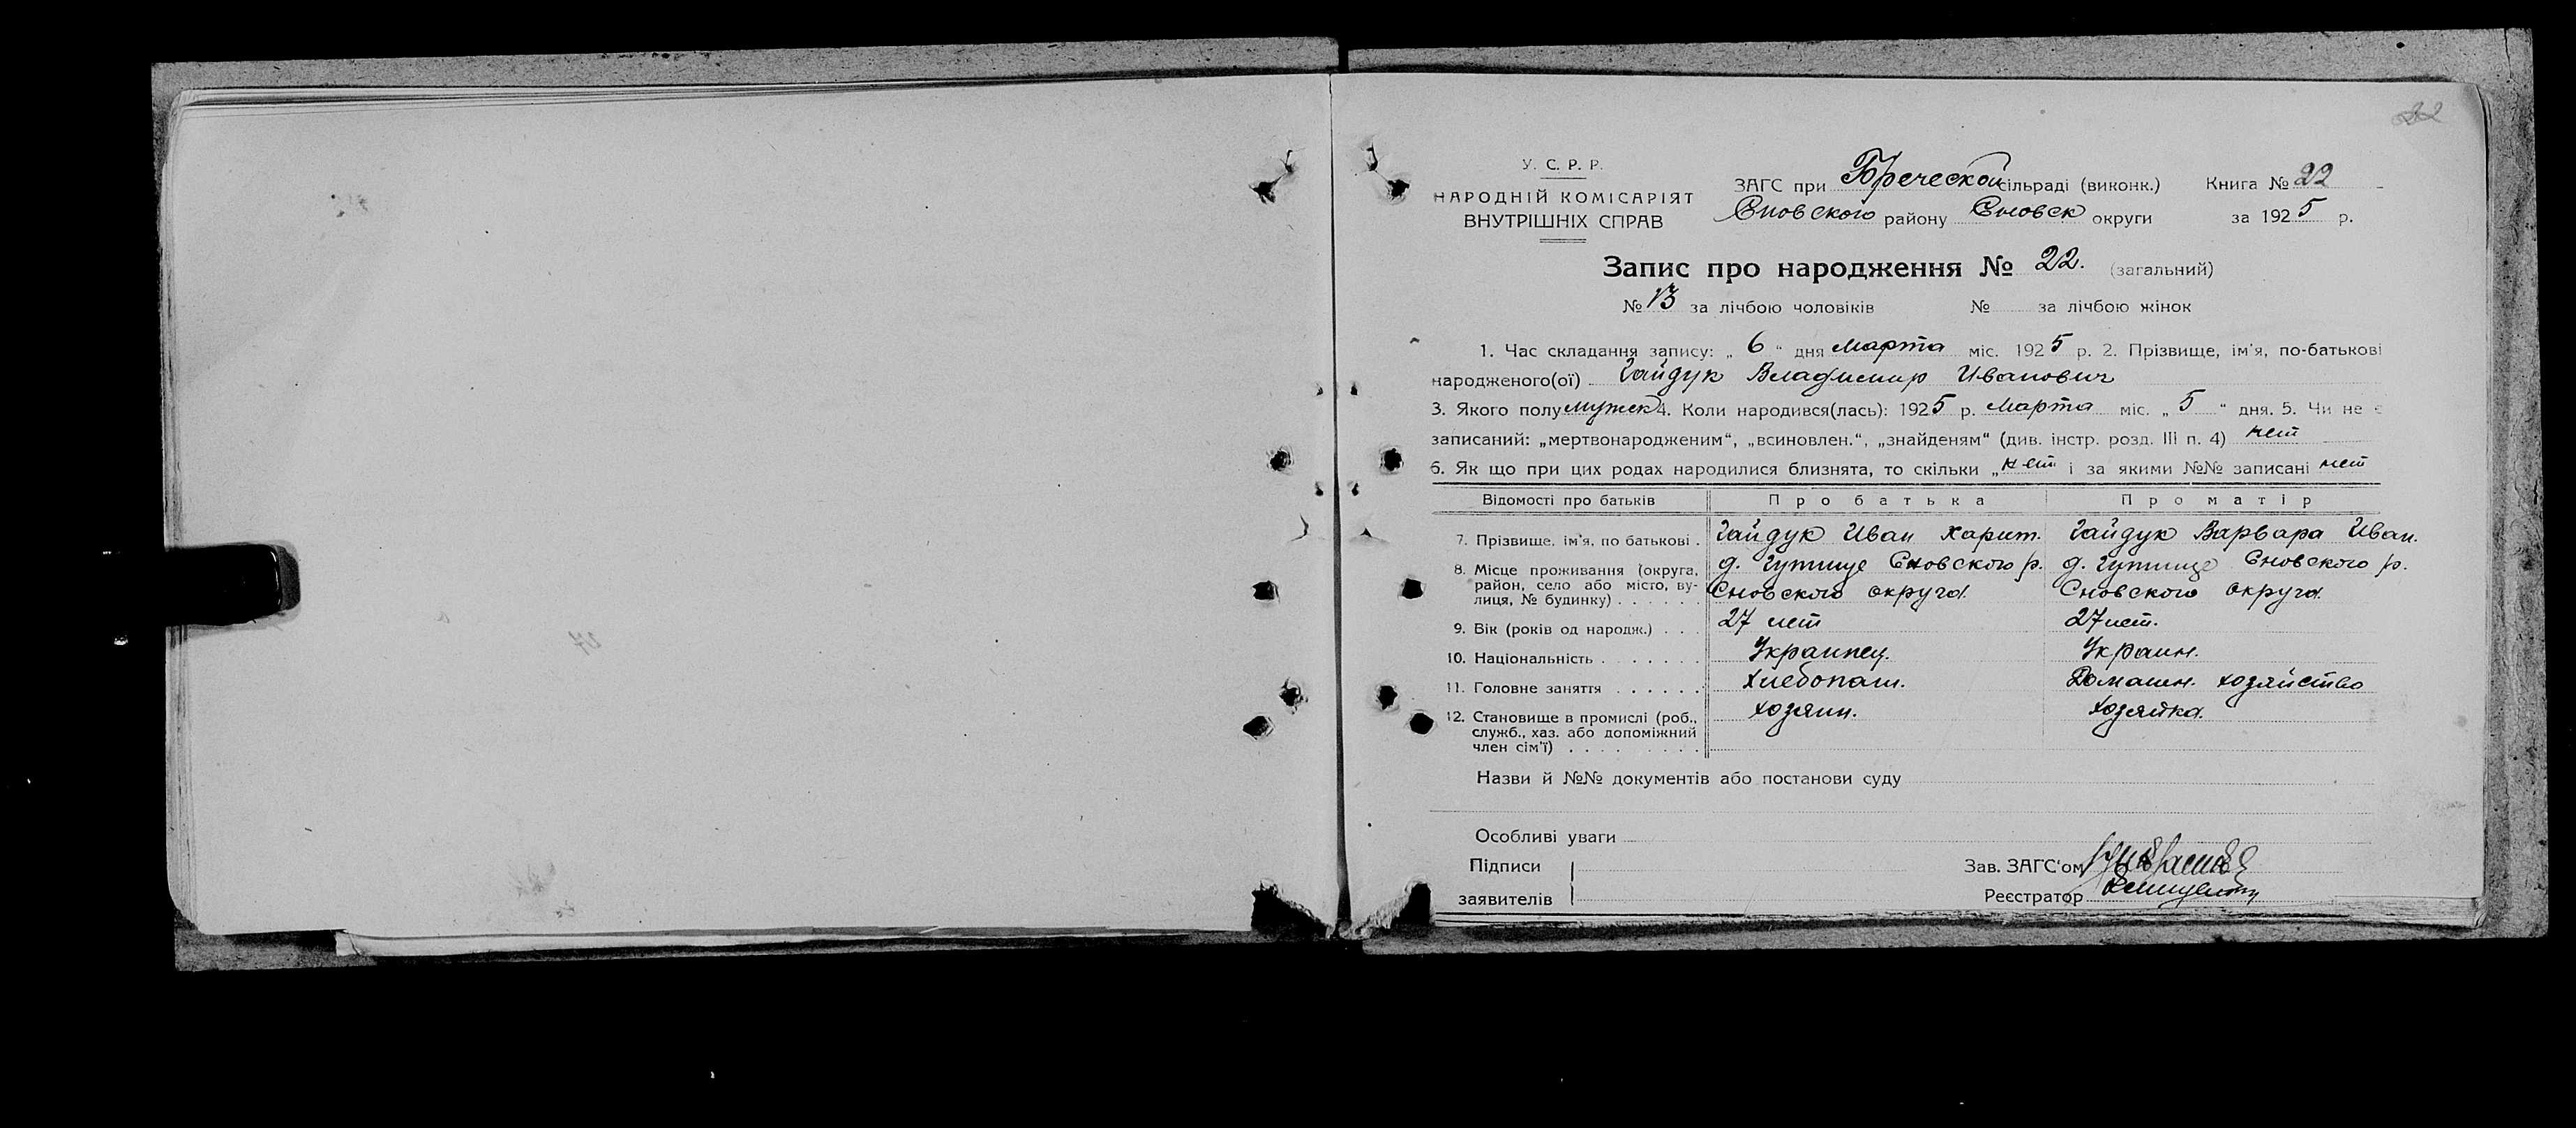 22
У. С. Р. Р.
НАРОДНІЙ КОМІСАРІЯТ
ВНУТРІШНІХ СПРАВ
ЗАГС при Бреческой сільраді (виконк.) Книга № 22
Сновского району Сновск округи за 1925 р.
Запис про народження № 22. (загальний)
№ 13 за лічбою чоловіків № за лічбою жінок
1. Час складання запису: „ 6 “ дня Марта міс. 1925 р. 2. Прізвище, ім'я, по-батькові
народженого(ої) Гайдук Владимир Иванович
3. Якого полу мужск 4. Коли народився(лась): 1925 р. Марта міс. „ 5 “ дня. 5. Чи не є
записаний: „мертвонародженим“, „всиновлен.“, „знайденям“ (див. інстр. розд. III п. 4) нет
6. Як що при цих родах народилися близнята, то скільки „ нет і за якими №№ записані нет
Відомості про батьків Про батька Про матір
7. Прізвище, ім'я, по батькові . Гайдук Иван Харит. Гайдук Варвара Иван.
8. Місце проживання (округа, д. Гутище Сновского р. д. Гутище Сновского р.
район, село або місто, ву-
лиця, № будинку) . . . . . . Сновского округа. Сновского округа.
9. Вік (років од народж.) . . . 27 лет 27 лет.
10. Національність . . . . . . . Украинец. Украин.
11. Головне заняття . . . . . . Хлебопаш. Домашн. хозяйство
12. Становище в промислі (роб., хозяин. хозяйка.
служб., хаз. або допоміжний
член сім'ї) . . . . . . . .
Назви й №№ документів або постанови суду
Особливі уваги
Підписи
заявителів
Зав. ЗАГС'ом
Реєстратор